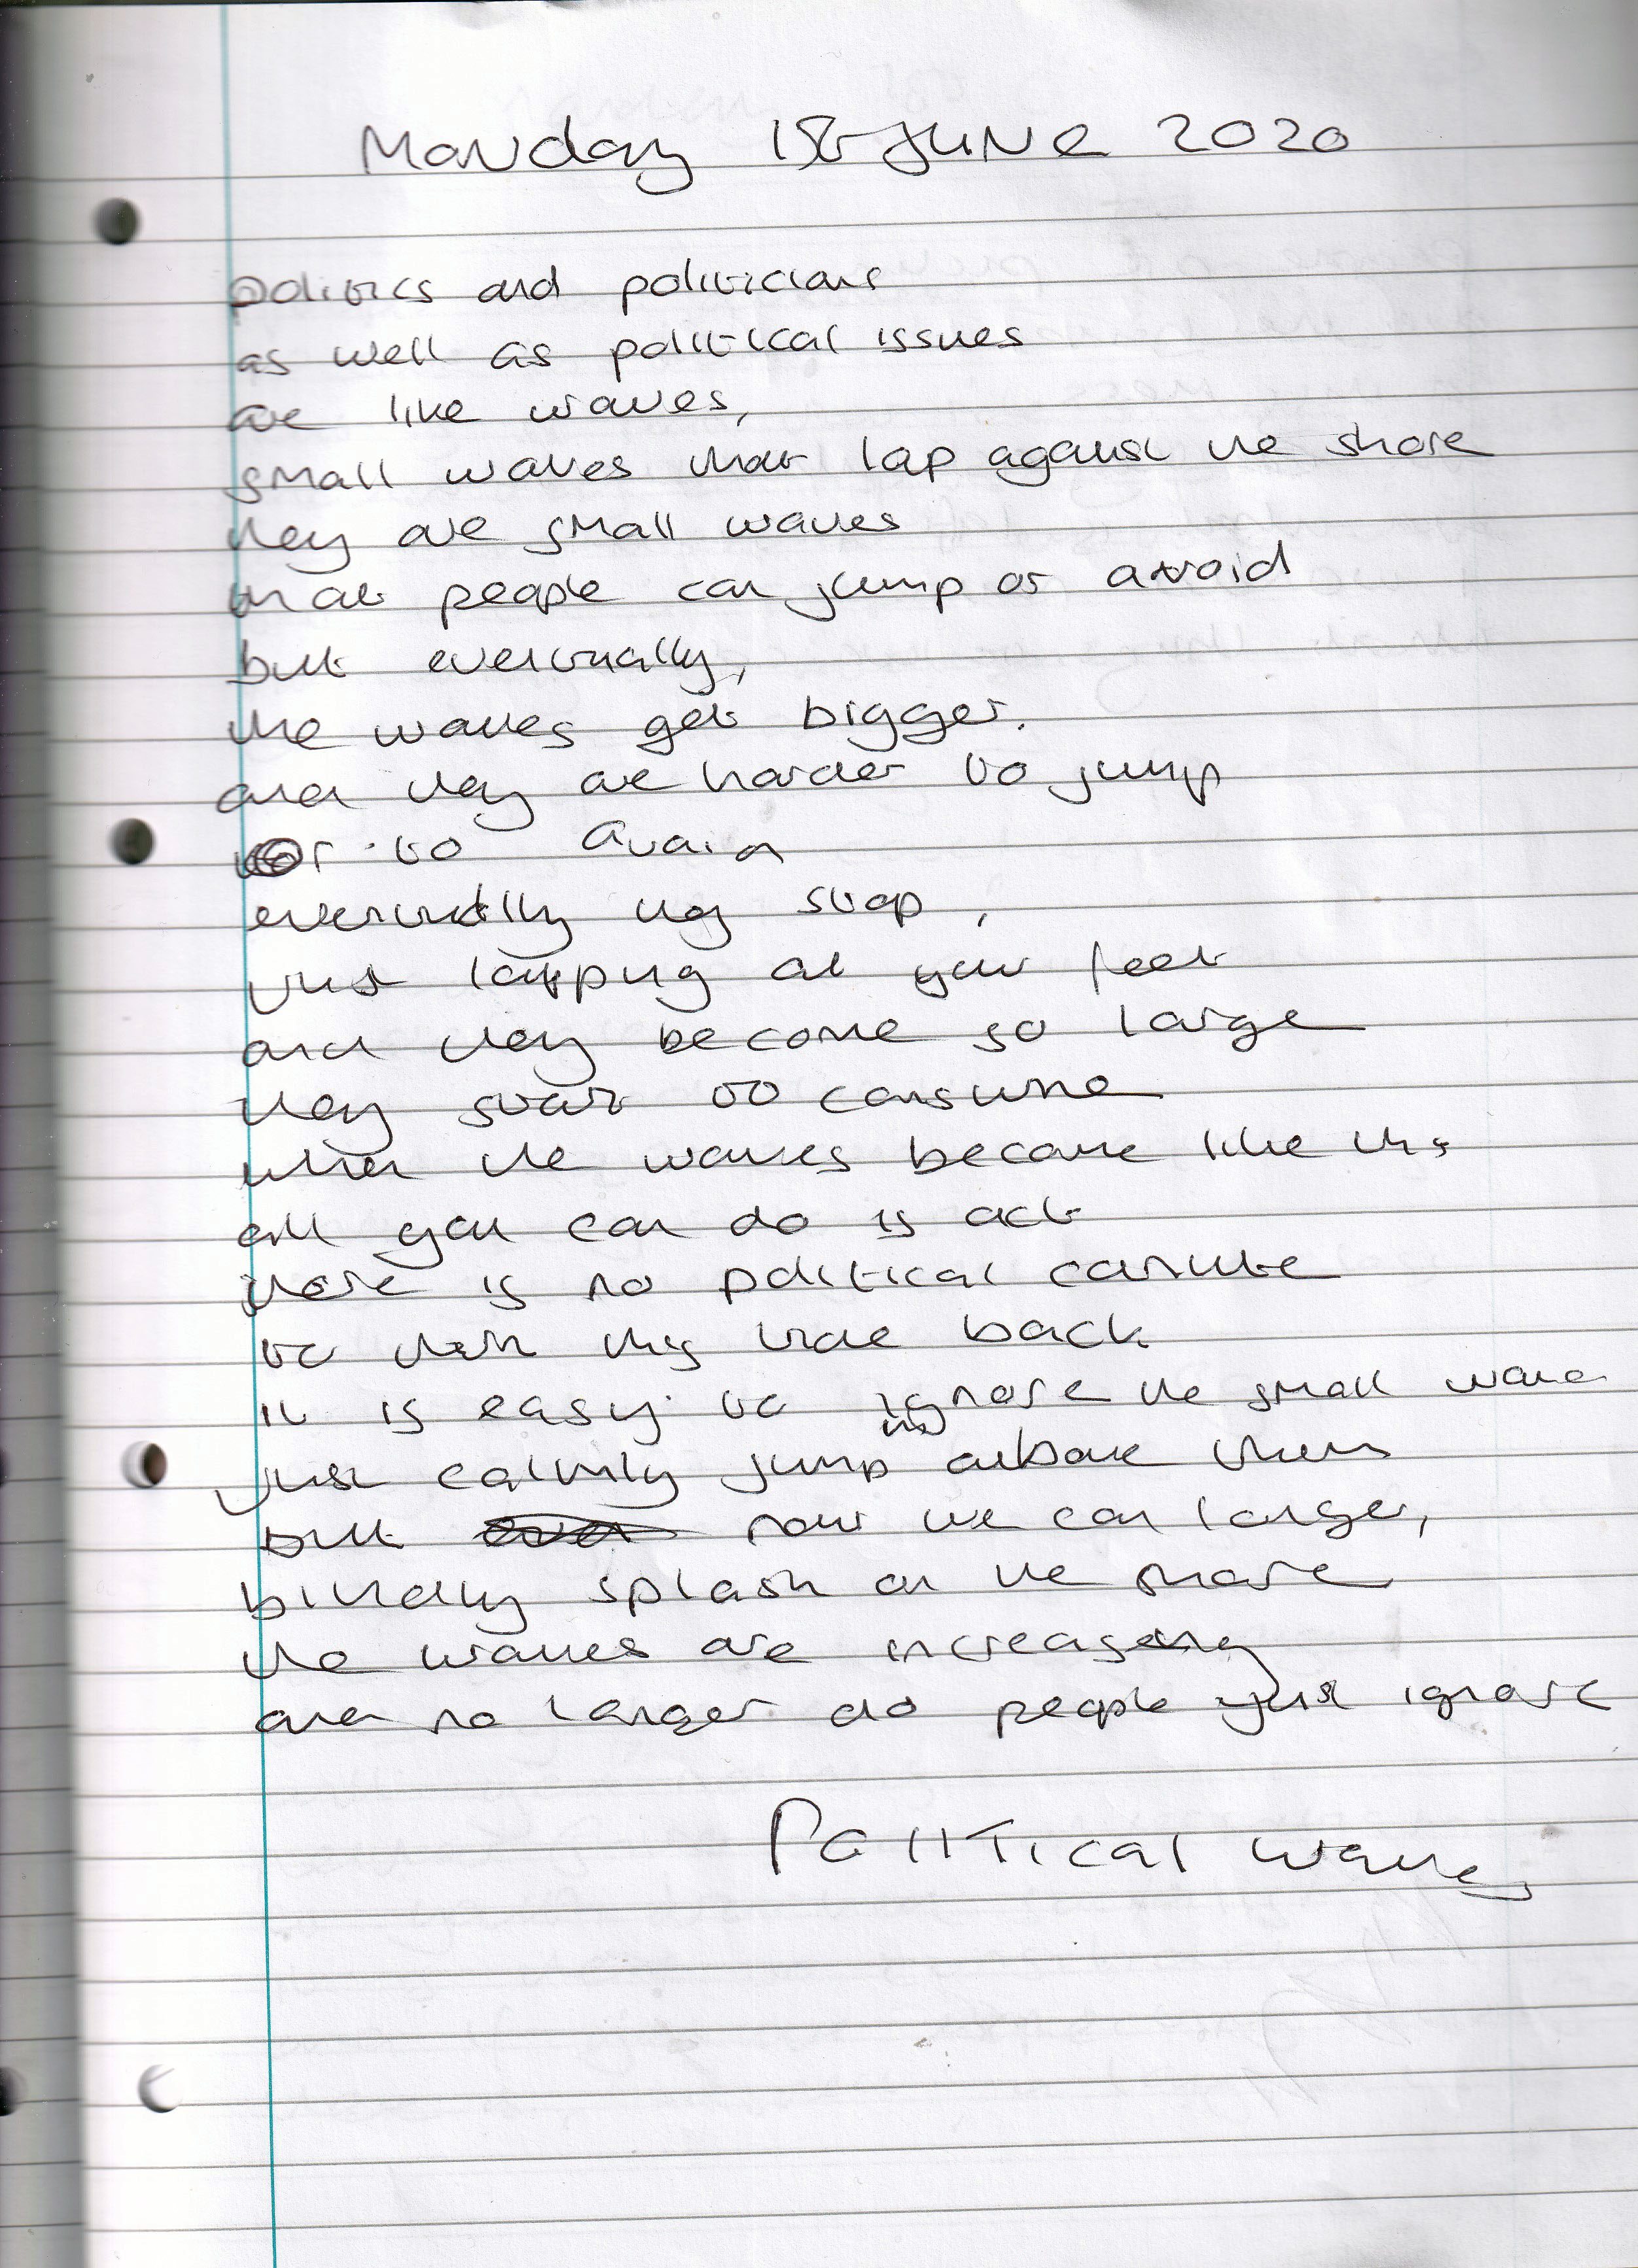 Monday 1st June 2020
politics and politicians
as well as political issues
are like waves,
small waves that lap against the shore
they are small waves
that people can jump or avoid
but eventually,
the waves get bigger.
and they are harder to jump
or to avoid
eventually they stop,
just lapping at your feet
and they become so large
they start to consume
when the waves become like this
all you can do is act
there is no political
to turn this tide back
it is easy to ignore the small wave
just calmly jump above them
but now we can longer,
blindly splash on the shore
the waves are increasing
and no longer do people just ignore
Political waves